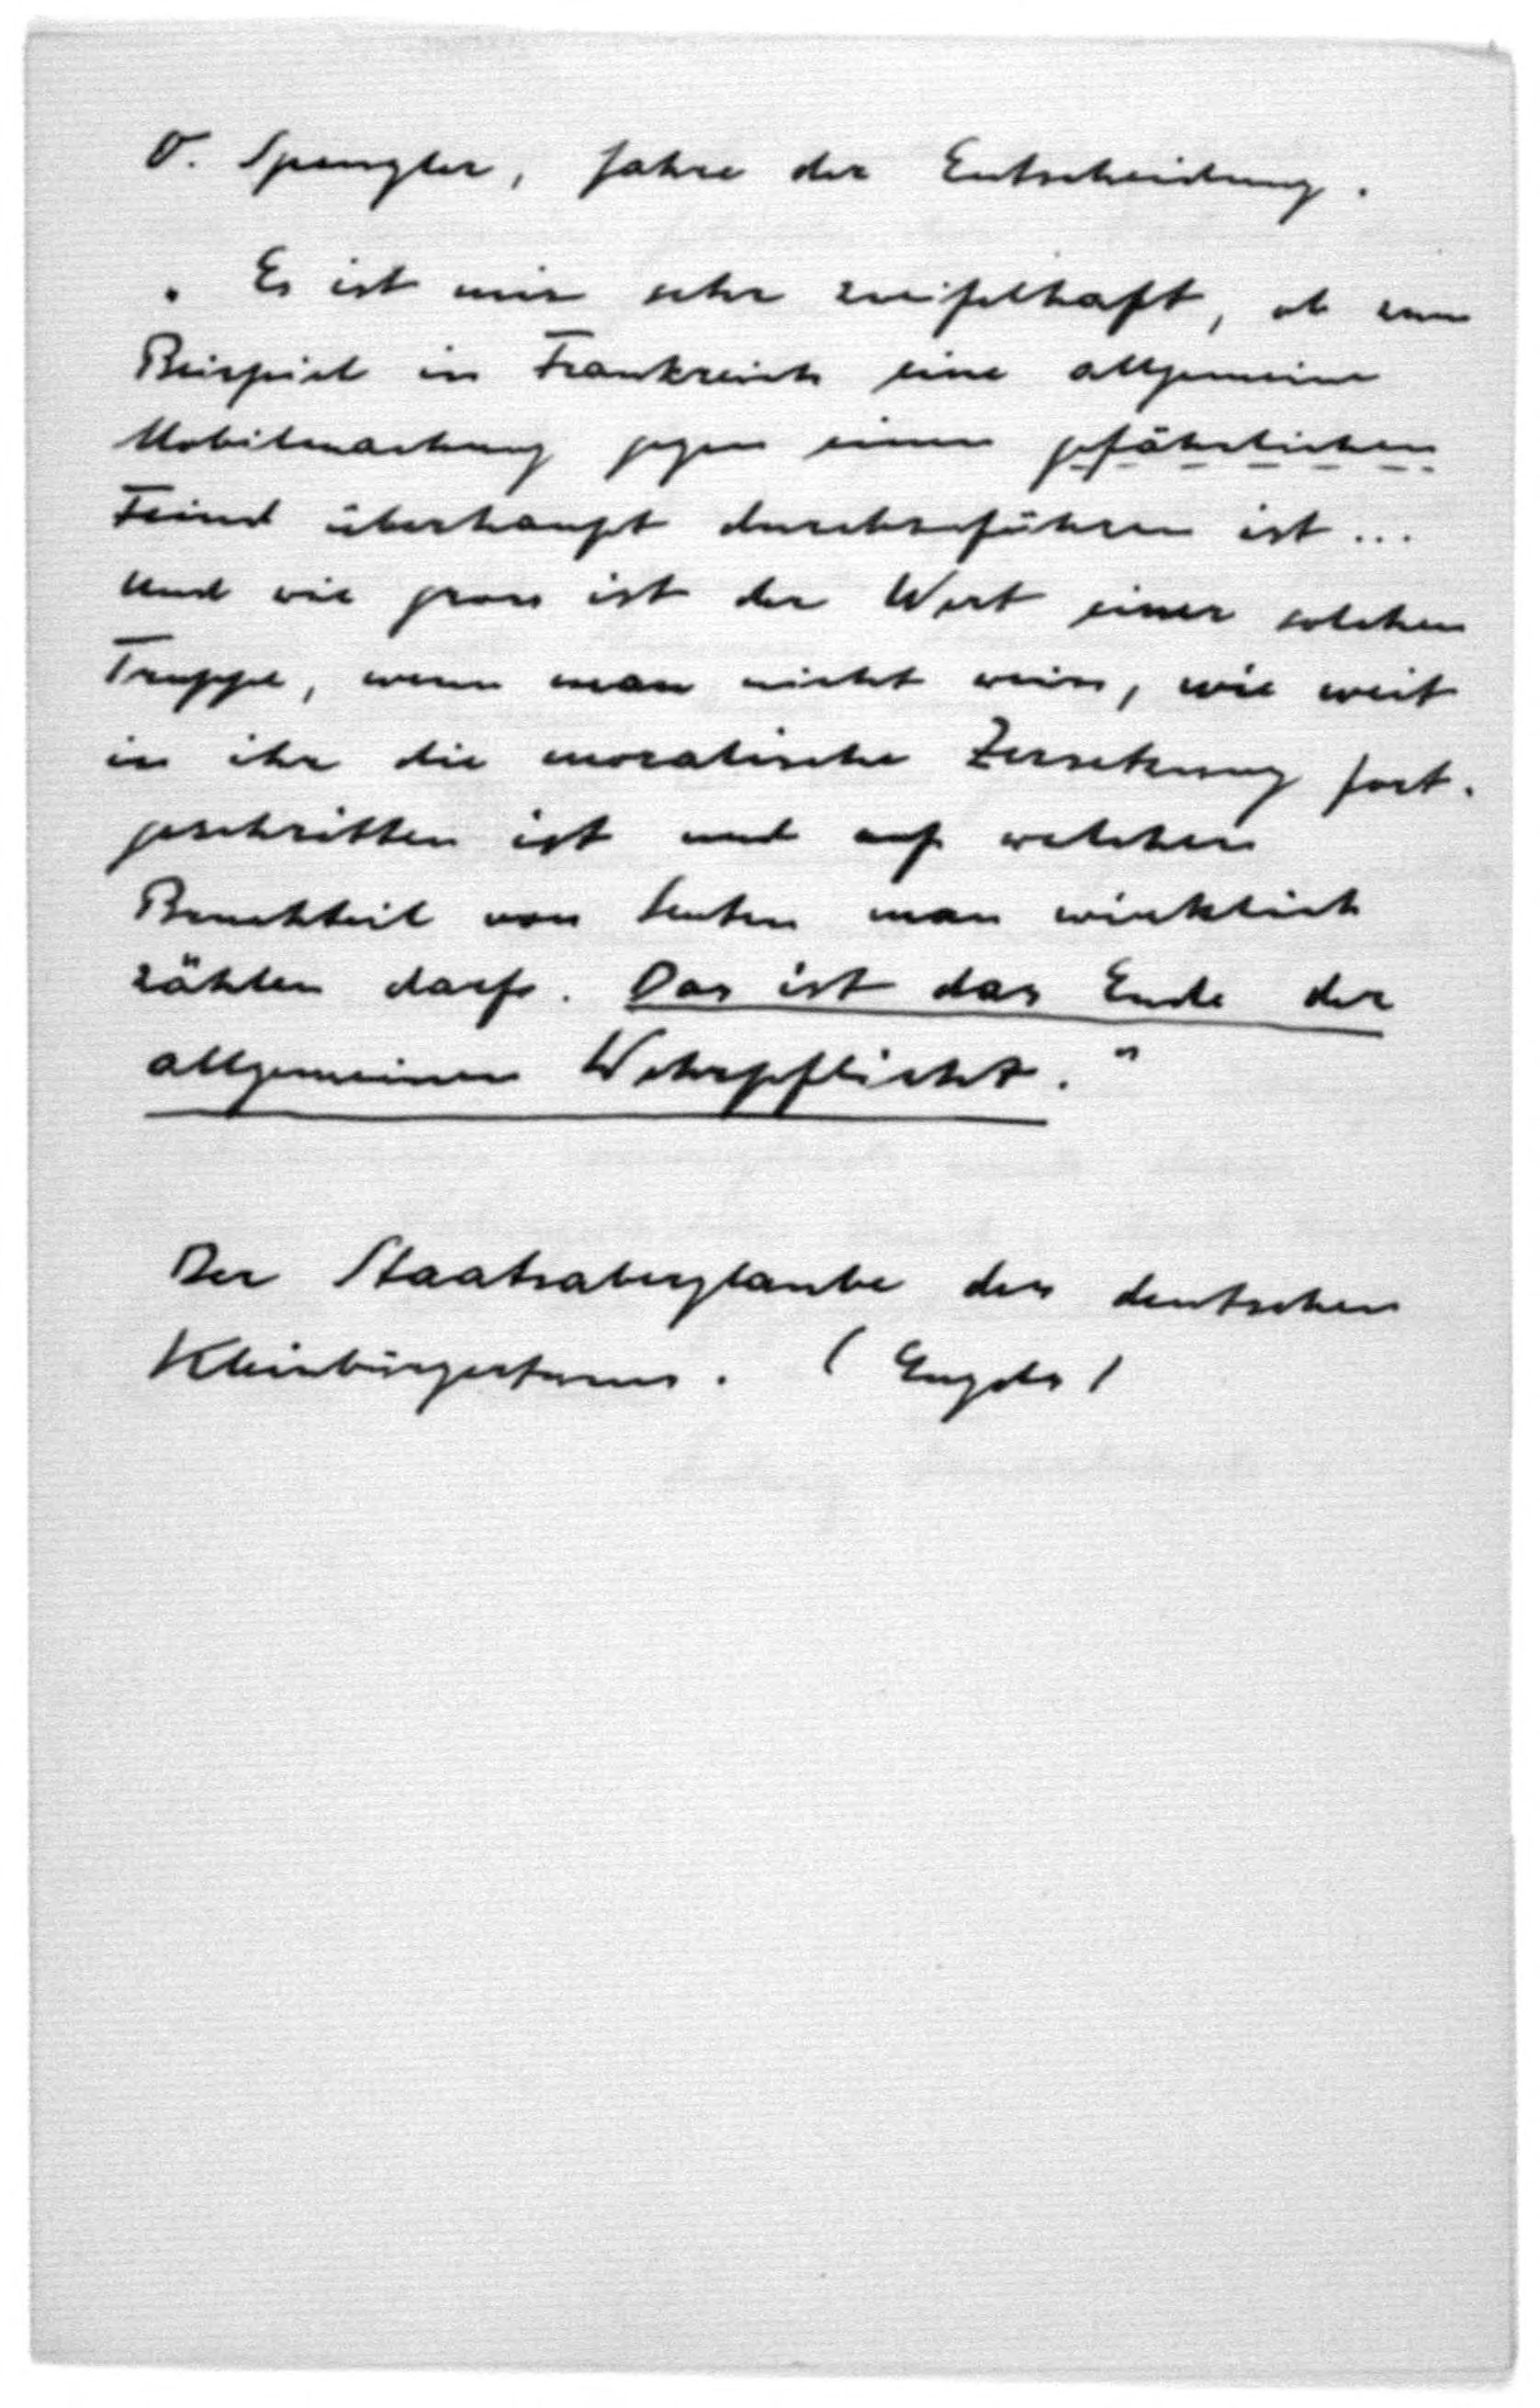 O. Spengler, Jahre der Entscheidung.
„Es ist mir sehr zweifelhaft, ob zum
Beispiel in Frankreich eine allgemeine
Mobilmachung gegen einen gefährlichen
Feind überhaupt durchzuführen ist ...
Und wie gross ist der Wert einer solchen
Truppe, wenn man nicht weiss, wie weit
in ihr die moralische Zersetzung fort-
geschritten ist und auf welchen
Bruchteil von Leuten man wirklich
zählen darf. Das ist das Ende der
allgemeinen Wehrpflicht."
Der Staatsaberglaube des deutschen
Kleinbürgertums. (Engels)